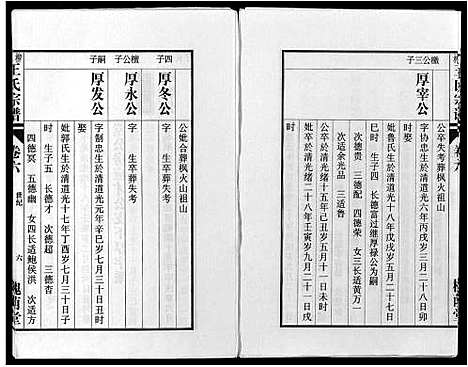 㰖公三子
厚宰公
公卒失考葬枫火山祖山
字协忠生於清道光六年丙戌三月二十八日卯
时
妣鲁氏生於清道光十八年戊戌七月二十三日
巳时 生子四 长德富过继厚禄公为嗣
次德贵 三德配 四德荣 女三长适黄
次适余光品 三适鲁
公卒於清光绪十五年己丑五月十一日未时
妣卒於清光绪二十八年壬寅九月二十一日戌
王氏宗谱
卷六
世纪
六
槐荫堂
四子
厚冬公
公妣合葬枫火山祖山
字 生卒葬失考
厚永公
字 生卒葬失考
嗣子
厚发公
字制忠生於清道光元年辛巳岁七月三十日丑时
娶
妣郭氏生於清道光十七年丁酉岁七月三十日子
时 生子五 长德才 次德超 三德杏
四德冥 五德幽 女四长适鲍侯洪 次适方